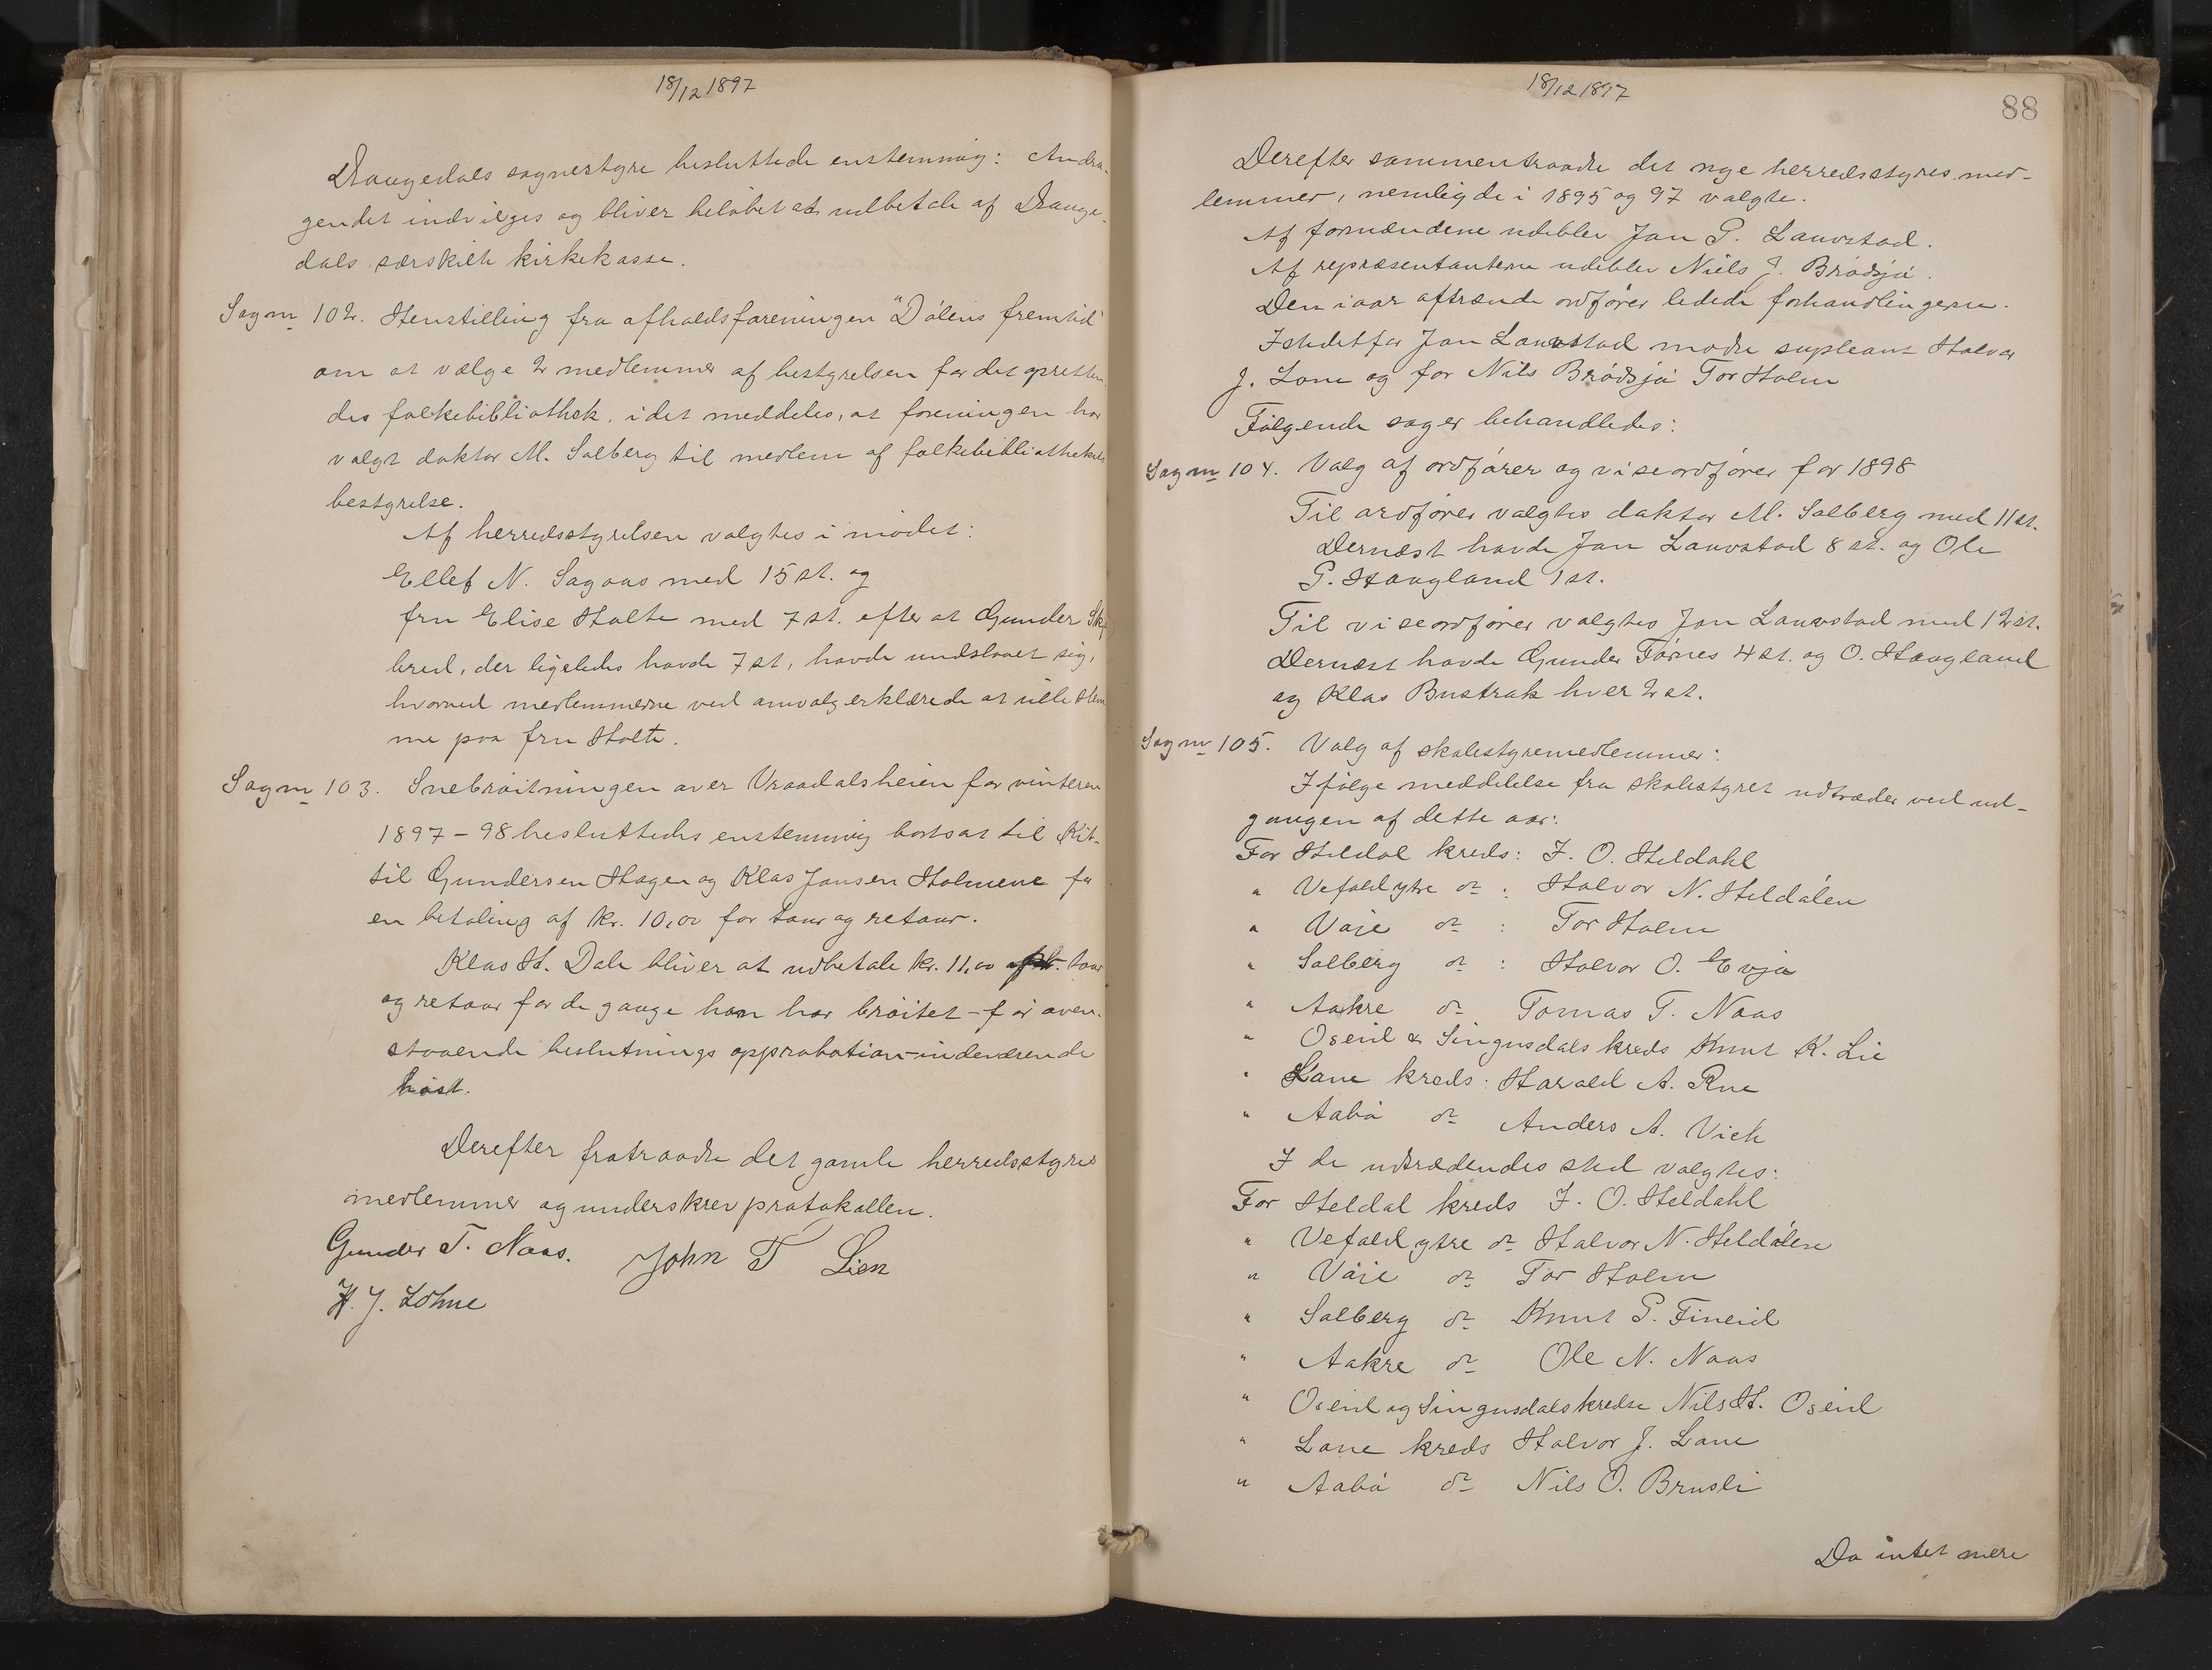 18/12 1897
Drangedals sognestyre besluttede enstemmig: Andra-
gendet indvilges og bliver beløbet at udbetale af Drange-
dals særskilte kirkekasse.
Sag no 102. Henstilling fra afholdsforeningen "Dølens fremtid"
om at vælge 2 medlemmer af bestyrelsen for det opretten-
des folkebibliothek, idet meddeles, at foreningen har
valgt doktor M. Solberg til medlem af folkebibliothekets
bestyrelse.
Af herredsstyrelsen valgtes i mødet:
Ellef N. Sagaas med 15 st. og
fru Elise Holte med 7 st. efter at Gunder
bred, der ligeledes havde 7 st, havde undslaaet sig,
hvorved medlemmerne ved omvalg erklærede at ville stem
me paa fru Holte.
Sag no 103. Snebrøitningen over Vraadalsheien for vinteren
1897-98 besluttedes enstemmig bortsat til Kit-
til Gundersen Hagen og Klas Jansen Holmene for
en betaling af kr. 10,00 for tour og retour.
Klas H. Dale bliver at udbetale kr. 11,00 tour
og retour for de gange han har brøitet - før oven-
staaende beslutnings approbation - indeværende
høst.
Derefter fratraadte det gamle herredsstyres
medlemmer og underskrev protokollen.
Gunder T. Naas. John T Lien
H. J. Lohne
18/12 1897
88
Derefter sammentraadte det nye herredsstyres med-
lemmer, nemlig de i 1895 og 97 valgte.
Af formændene udeblev Jan P. Lauvstad.
Af repræsentanterne udeblev Niels J. Brødsjø.
Den i aar aftrædende ordfører ledede forhandlingerne.
Istedetfor Jan Lauvstad mødte supleant Halvor
J. Lone og for Nils Brødsjø Tor Holm
Følgende sager behandledes:
Sag no 104. Valg af ordfører og viseordfører for 1898
Til ordfører valgtes doktor M. Solberg med 11 st.
Dernæst havde Jan Lauvstad 8 st. og Ole
P. Haugland 1 st.
Til viseordfører valgtes Jan Lauvstad med 12 st.
Dernæst havde Gunder Tørnes 4 st. og O. Haugland
og Klas Bustrak hver 2 st.
Sag no 105. Valg af skolestyremedlemmer:
Ifølge meddelelse fra skolestyret udtræder ved ud-
gangen af dette aar:
For Heldal kreds: I. O. Heldahl
" Vefald ytre do : Halvor N. Heldalen
" Vøie do : Tor Holm
" Solberg do : Halvor O. Evja
" Aakre do Tomas T. Naas
" Oseid & Singusdals kreds Knut K. Lie
" Lone kreds: Harald A. Rue
" Aabø do Anders A. Viek
I de udtrædendes sted valgtes:
For Heldal kreds I. O. Heldahl
" Vefald ytre do Halvor N. Heldalen
" Vøie do Tor Holm
" Solberg do Knut P. Fineid
" Aakre do Ole N. Naas
" Oseid og Singusdals kredse Nils H. Oseid
" Lone kreds Halvor J. Lone
" Aabø do Nils O. Brusli
Da intet mere